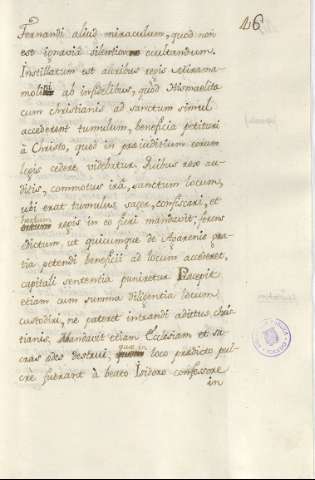 46
Fernandi aliud miraculum, quod non
est ignavia silentio occultandum.
Instillatum est auribus regis Mirama
molini ab infidelibus, quòd Hismaelitæ
cum christianis ad sanctum simul
accederent tumulum, beneficia petituri
à Christo, quod in præiuditium eorum
legis cedere videbatur. Quibus rex au-
ditis, commotus irâ, sanctum locum,
ubi erat tumulus sacer, confiscari, et
regis in eo fieri mandavit, ferens
edictum, ut quicumque de gra-
tia petendi beneficii ad locum accederet,
capitali sententia puniretur. Præcepit
etiam cum summa diligentia locum
custodiri, ne pateret intrandi adittus chris
tianis. Mandavit etiam Ecclesiam et sa
cras edes destrui, quæ in loco predicto pul
crè fuerant à beato Isidoro confessore
in